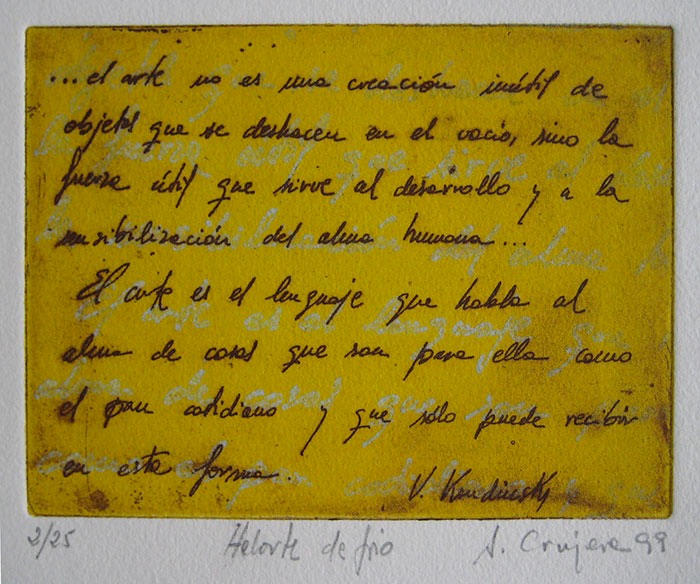 ...el arte no es una creación inútil de
objetos que se deshacen en el vacío, sino la
fuerza útil que sirve al desarrollo y a la
sensibilización del alma humana...
El arte es el lenguaje que habla al
alma de cosas que son para ella como
el pan cotidiano y que sólo puede recibir
en esta forma.
V. Kandinsky
2/25 Helarte de frio A. Crujera 99